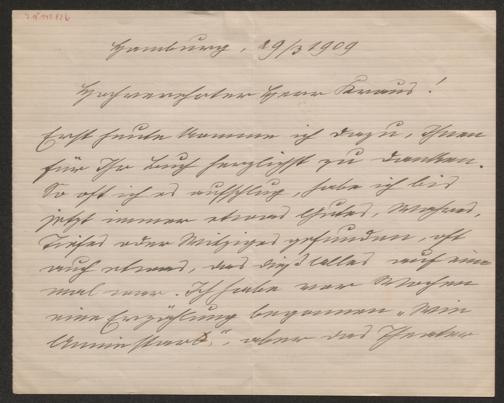 Hamburg, 29/3 1909
Hochverehrter Herr Kraus!
Erst heute komme ich dazu, Ihnen
für Ihr Buch herzlichst zu danken.
So oft ich es aufschlug, habe ich bis
jetzt immer etwas Gutes, Wahres,
Tiefes oder Witziges gefunden, oft
auch etwas, das dieß alles auf ein
mal war. Ich habe vor Wochen
eine Erzählung begonnen „Wie
Annie starb“, aber das Theater